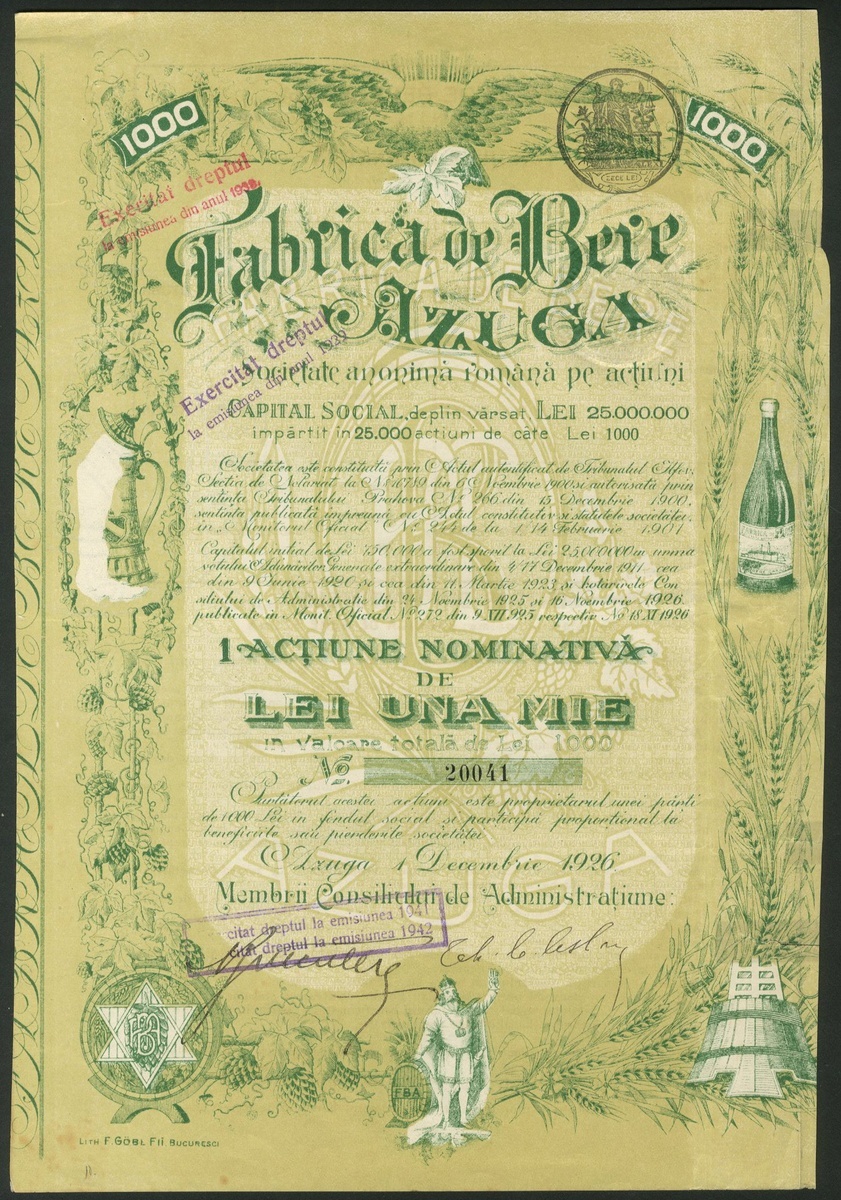 1000
1000
ZECE LEI
Exercitat dreptul
la emisiunea din anul
Fabrica de Bere
AZUGA
Exercitat dreptul
la emisiunea din anul 1939
Societate anonimă română pe acțiuni
CAPITAL SOCIAL, deplin vărsat, LEI 25.000.000
împărțit în 25.000 acțiuni de câte Lei 1000
Societatea este constituită prin Actul autentificat de Tribunalul Ilfov,
Secția de Notariat la No 6789 din 6 Noembrie 1900 și autorisată prin
sentința Tribunalului Prahova No 266 din 15 Decembrie 1900,
sentință publicată împreună cu Actul constitutiv și statutele societăței
în „Monitorul Oficial" No 244 de la 1/14 Februarie 1901.
Capitalul inițial de Lei 750.000 a fost sporit la Lei 25.000.000 in urma
votului Adunărilor Generale extraordinare din 4/17 Decembrie 1911 cea
din 9 Iunie 1920 și cea din 11 Martie 1923 și hotărîrile Con
siliului de Administrație din 24 Noembrie 1925 și 16 Noembrie 1926.
publicate in Monit. Oficial No 272 din 9 XII 925 respectiv No 18 XI 1926
1 ACȚIUNE NOMINATIVĂ
DE
LEI UNA MIE
in valoare totală de Lei 1000
No. 20041
Purtătorul acestei acțiuni este proprietarul unei părți
de 1000 Lei in fondul social și participă proporțional la
beneficiile sau pierderile societăței
Azuga 1 Decembrie 1926.
Membrii Consiliului de Administrațiune:
citat dreptul la emisiunea 1941
citat dreptul la emisiunea 1942
FBA
FBA
LITH F. GÖBL FII BUCUREȘCI
FABRICA DE BERE
AZUGA